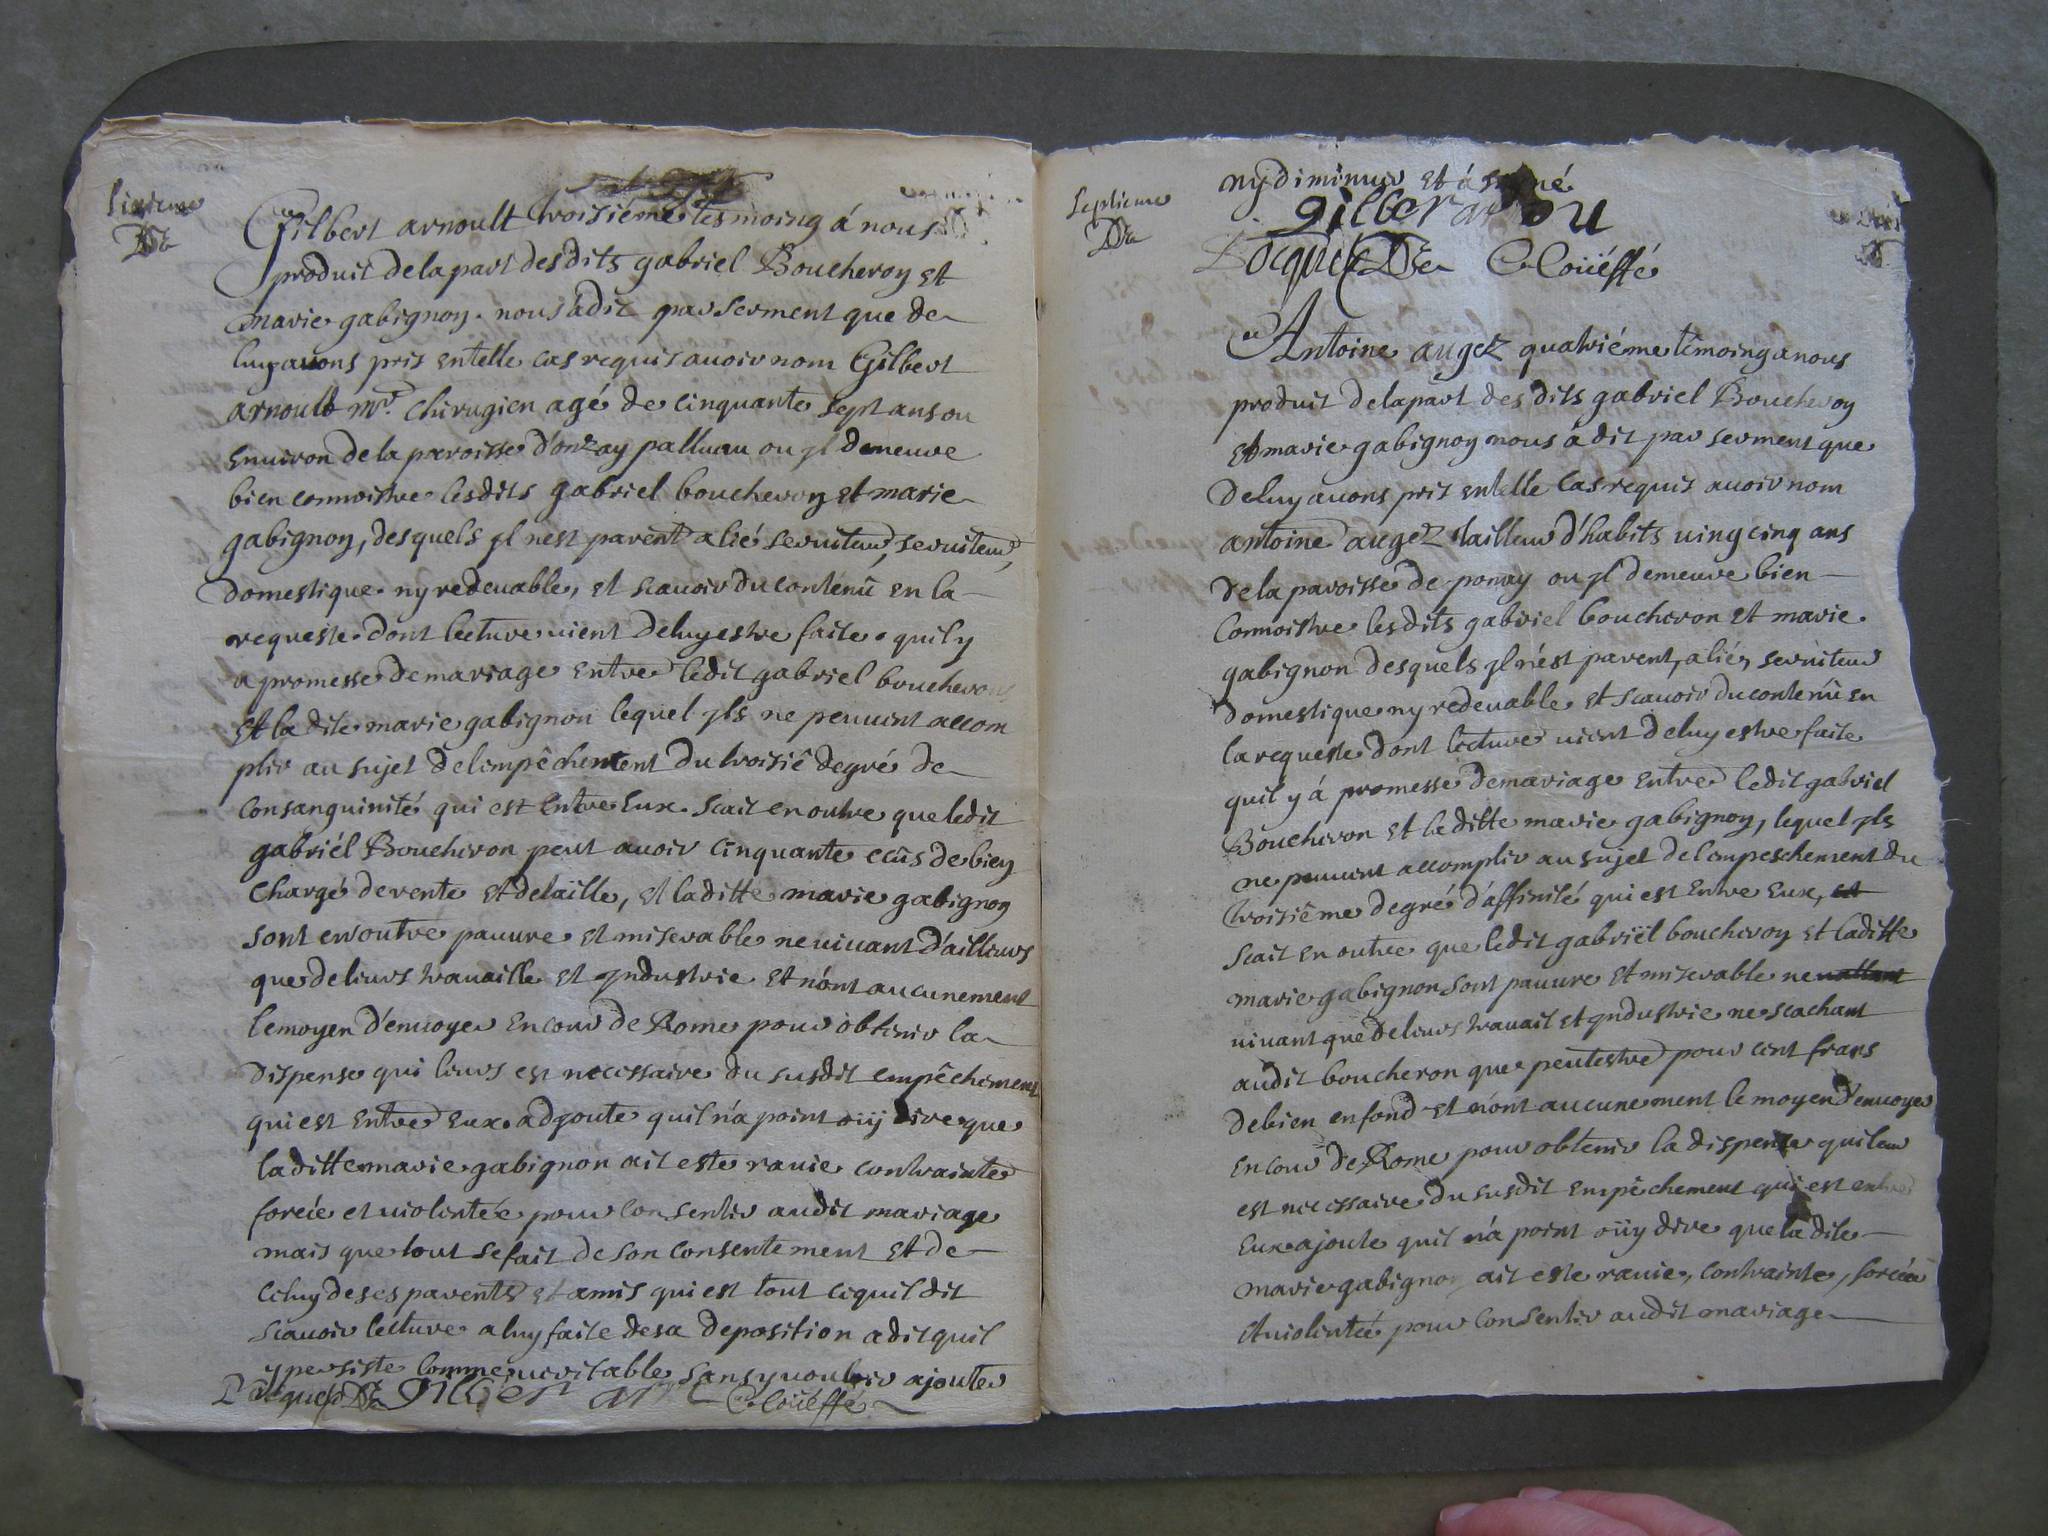 sixieme
Gilbert arnoult troisiéme tesmoing á nous
produit de la part des dits gabriel Boucheron Et
marie gabignon. nous a dit par serment que de
luy auons pris en telle cas requis auoir nom Gilbert
arnoult Mre. chirugien agé de cinquante sept ans ou
Enuiron de la paroisse d'onzay palluau ou jl demeure
bien connoistre lesdits gabriel boucheron et marie
gabignon, desquels jl nest parent alié seruiteur, seruiteur,
domestique ny redeuable, et scauoir du contenû en la
requeste dont lecture uient de luy estre faite. quil y
a promesse de mariage entre ledit gabriel boucheron
et la dite marie gabignon lequel jls ne peuuent accom
plir au sujet de lempêchement du troisiê degré de
consanguinité qui est entre Eux. scait en outre que ledit
gabriél Boucheron peut auoir cinquante ecûs de bien
chargé de rente et de taille, et la ditte marie gabignon
sont en outre pauure et miserable ne uiuant d'ailleurs
que de leurs trauaille et jndustrie et n'ont aucunement
le moyen d'enuoyer En cour de Rome pour obtenir la
dispense qui leurs est necessaire du susdit empêchement
qui est Entre Eux. adjoute quil n'a point oüÿ dire que
la ditte marie gabignon ait este rauie contrainte
forcée et uiolentée pour consentir audit mariage
mais que tout se fait de son consentement et de
celuy de ses parents et amis qui est tout ce quil dit
scauoir lecture a luy faite de sa deposition a dit quil
y persiste comme ueritable sans y uouloir ajouter
Locquet gilber ar Cloüéffé
Septieme
ny diminuer et á signé
gilber arnou
Locquet Cloüéffé
Antoine augez quatriéme têmoing a nous
produit de la part des dits gabriel Boucheron
et marie gabignon nous á dit par serment que
de luy auons pris en telle cas requis auoir nom
antoine augez tailleur d'habits uingcinq ans
de la paroisse de ponay ou jl demeure bien
connoistre lesdits gabriel boucheron et marie
gabignon desquels jl n'est parent, alié, seruiteur
domestique ny redeuable et scauoir du contenû en
la requeste dont lecture uient de luy estre faite
quil y á promesse de mariage entre ledit gabriel
Boucheron et la ditte marie gabignon, lequel jls
ne peuuent accomplir au sujet de lempeschement du
troisiême degré d'affinité qui est entre Eux, et
scait en outre que ledit gabriël boucheron et la ditte
marie gabignon sont pauure et miserable ne
uiuant que de leurs trauail et jndustrie ne scachant
audit boucheron que peutestre pour cent frans
de bien en fond et n'ont aucunement le moyen d'enuoyer
en cour de Rome pour obtenir la dispense qui leur
est necessaire du susdit Empêchement qui est entre
Eux ajoute quil n'a point oüy dire que la dite
marie gabignon ait este rauie, contrainte, forcée
et uiolentée pour consentir audit mariage